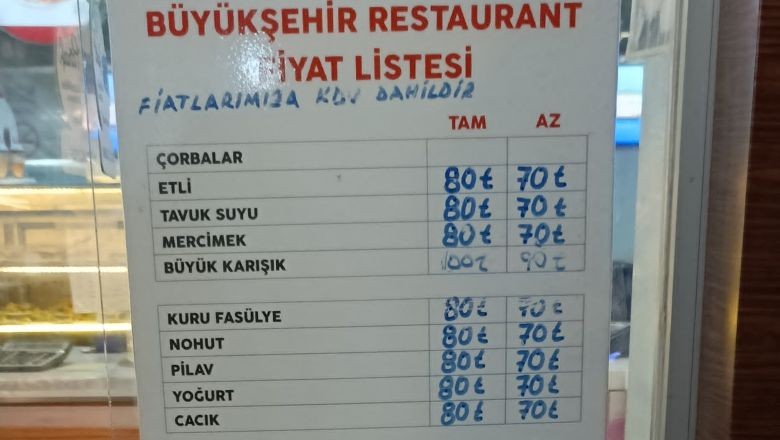 BÜYÜKŞEHİR RESTAURANT
FİYAT LİSTESİ
FİATLARIMIZA KDV DAHİLDİR
TAM AZ
ÇORBALAR
ETLİ 80₺ 70₺
TAVUK SUYU 80₺ 70₺
MERCİMEK 80₺ 70₺
BÜYÜK KARIŞIK 100₺ 90₺
KURU FASÜLYE 80₺ 70₺
NOHUT 80₺ 70₺
PİLAV 80₺ 70₺
YOĞURT 80₺ 70₺
CACIK 80₺ 70₺